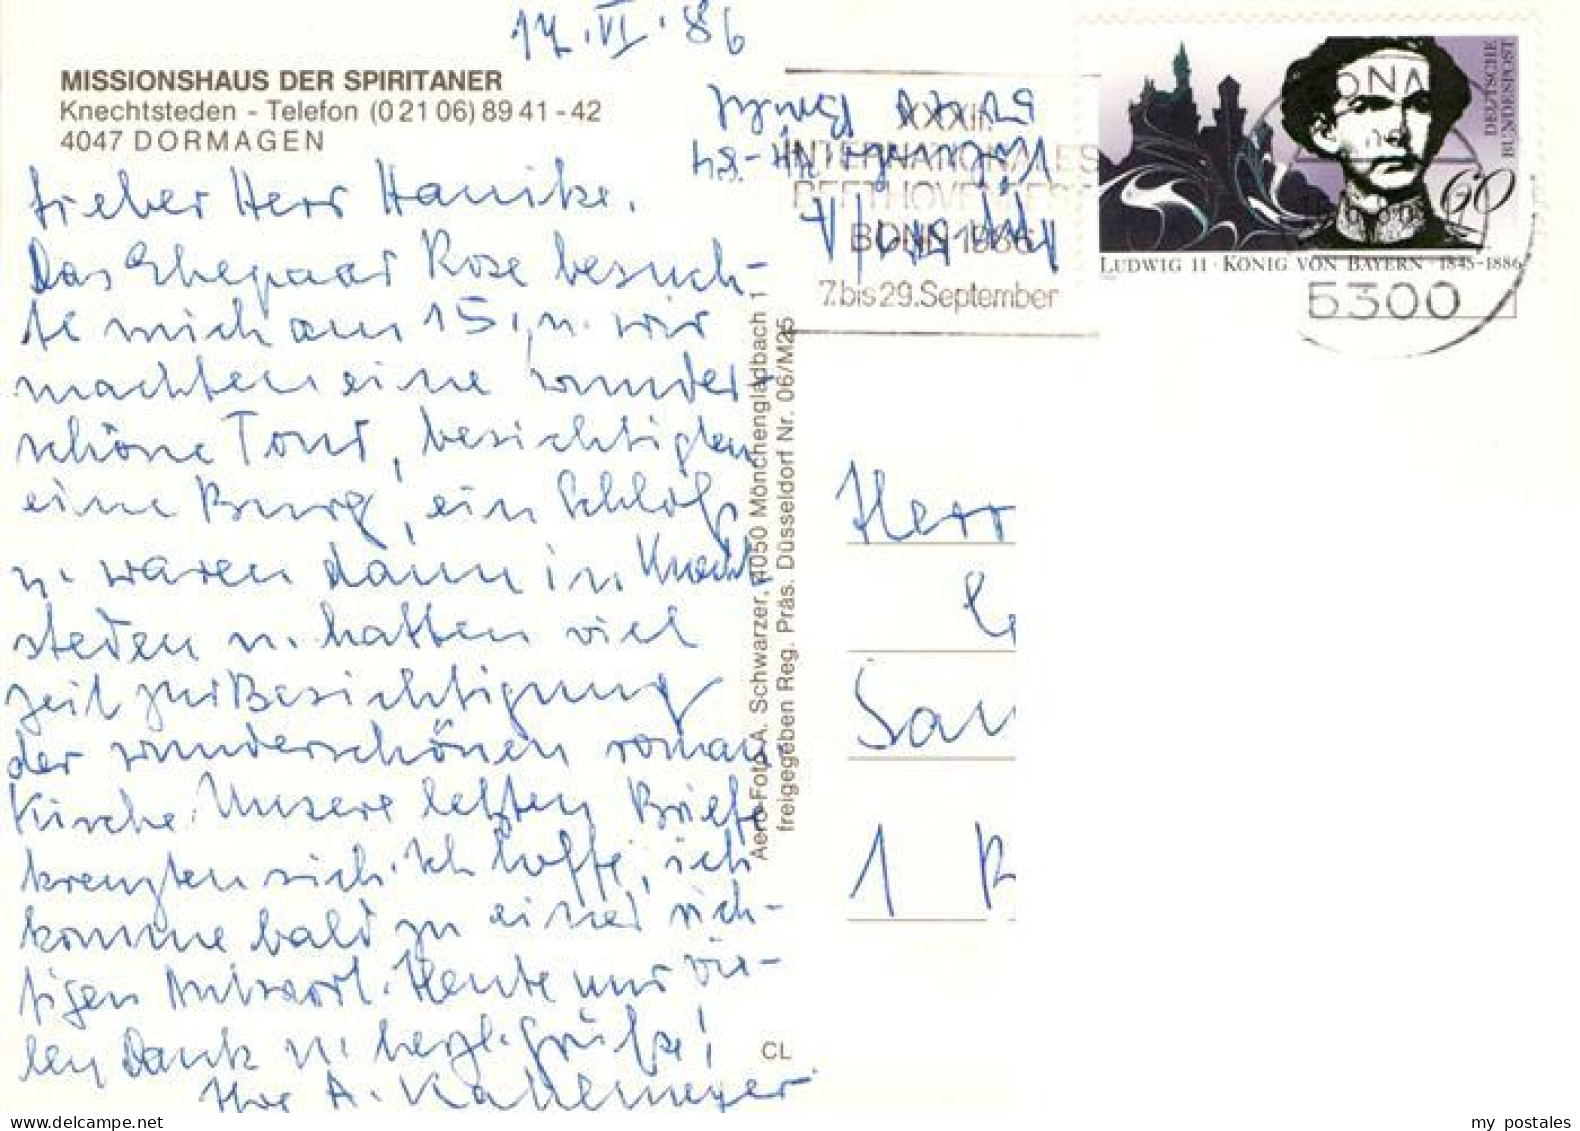 17.VI.86
MISSIONSHAUS DER SPIRITANER
Knechtsteden - Telefon (0 21 06) 89 41 - 42
4047 DORMAGEN
Lieber Herr Hanike.
Das Ehepaar Rose besuch-
te mich am 15., u. wir
machten eine wunder-
schöne Tour, besichtigten
eine Burg, ein Schloß
u. waren dann in Knecht
steden u. hatten viel
Zeit zur Besichtigung
der wunderschönen roman
Kirche. Unsere letzten Briefe
kreuzten sich. Ich hoffe, ich
komme bald zu einer rich-
tigen Antwort. Heute nur vie-
len Dank u. herzl. Grüße!
Ihr A. Kallemeyer
Aero-Foto A. Schwarzer, 4050 Mönchengladbach 1
freigegeben Reg. Präs. Düsseldorf Nr. 06/M25
CL
XXXII.
INTERNATIONALES
BEETHOVENFEST
BONN 1986
7. bis 29. September
DEUTSCHE
BUNDESPOST
60
LUDWIG II · KÖNIG VON BAYERN · 1845-1886
5300
Herr
San
1
my postales